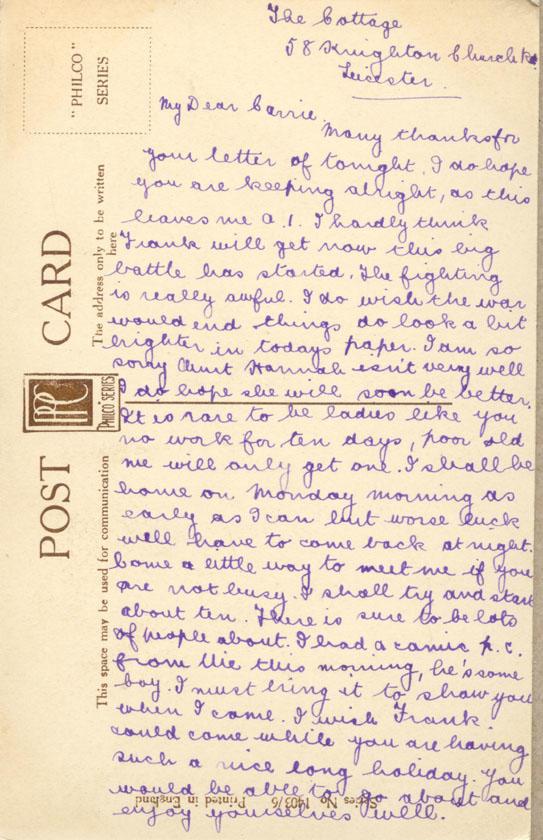 The Cottage
58 Knighton Church Rd
Leicester
My Dear Carrie,
Many thanks for
your letter of tonight. I do hope
you are keeping alright, as this
leaves me A.1. I hardly think
Frank will get now this big
battle has started. The fighting
is really awful. I do wish the war
would end things do look a bit
brighter in todays paper. I am so
sorry Aunt Hannah isn't very well
I do hope she will soon be better.
It is rare to be ladies like you
no work for ten days, poor old
me will only get one. I shall be
home on Monday morning as
early as I can but worse luck
well have to come back at night.
Come a little way to meet me if you
are not busy. I shall try and start
about ten. There is sure to be lots
of people about. I had a comic p.c.
from Vic this morning, he's some
boy. I must bring it to show you
when I come. I wish Frank
could come while you are having
such a nice long holiday. You
would be able to go about and
enjoy yourselves well.
"PHILCO"
SERIES
POST CARD
The address only to be written
here
This space may be used for communication
PPC
PHILCO SERIES
Series No 1403/6 Printed in England